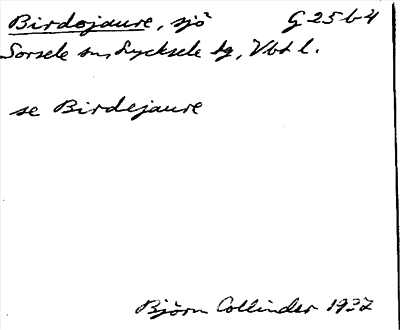 Birdojaure, sjö G 25 b 4
Sorsele sn, Lycksele lg, Vbtl.
se Birdejaure
Björn Collinder 1937